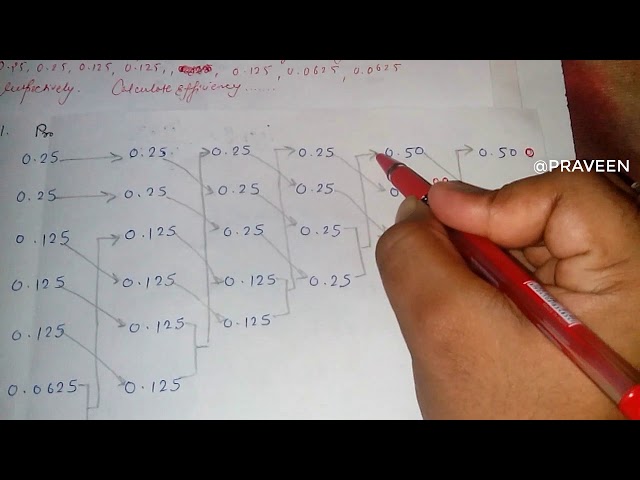 0.25, 0.25, 0.125, 0.125, 0.125, 0.0625, 0.0625
respectively. Calculate efficiency.......
1. Pro
0.25 0.25 0.25 0.25 0.50 0.50 0
@PRAVEEN
0.25 0.25 0.25 0.25
0.125 0.125 0.25 0.25
0.125 0.125 0.125 0.25
0.125 0.125 0.125
0.0625 0.125